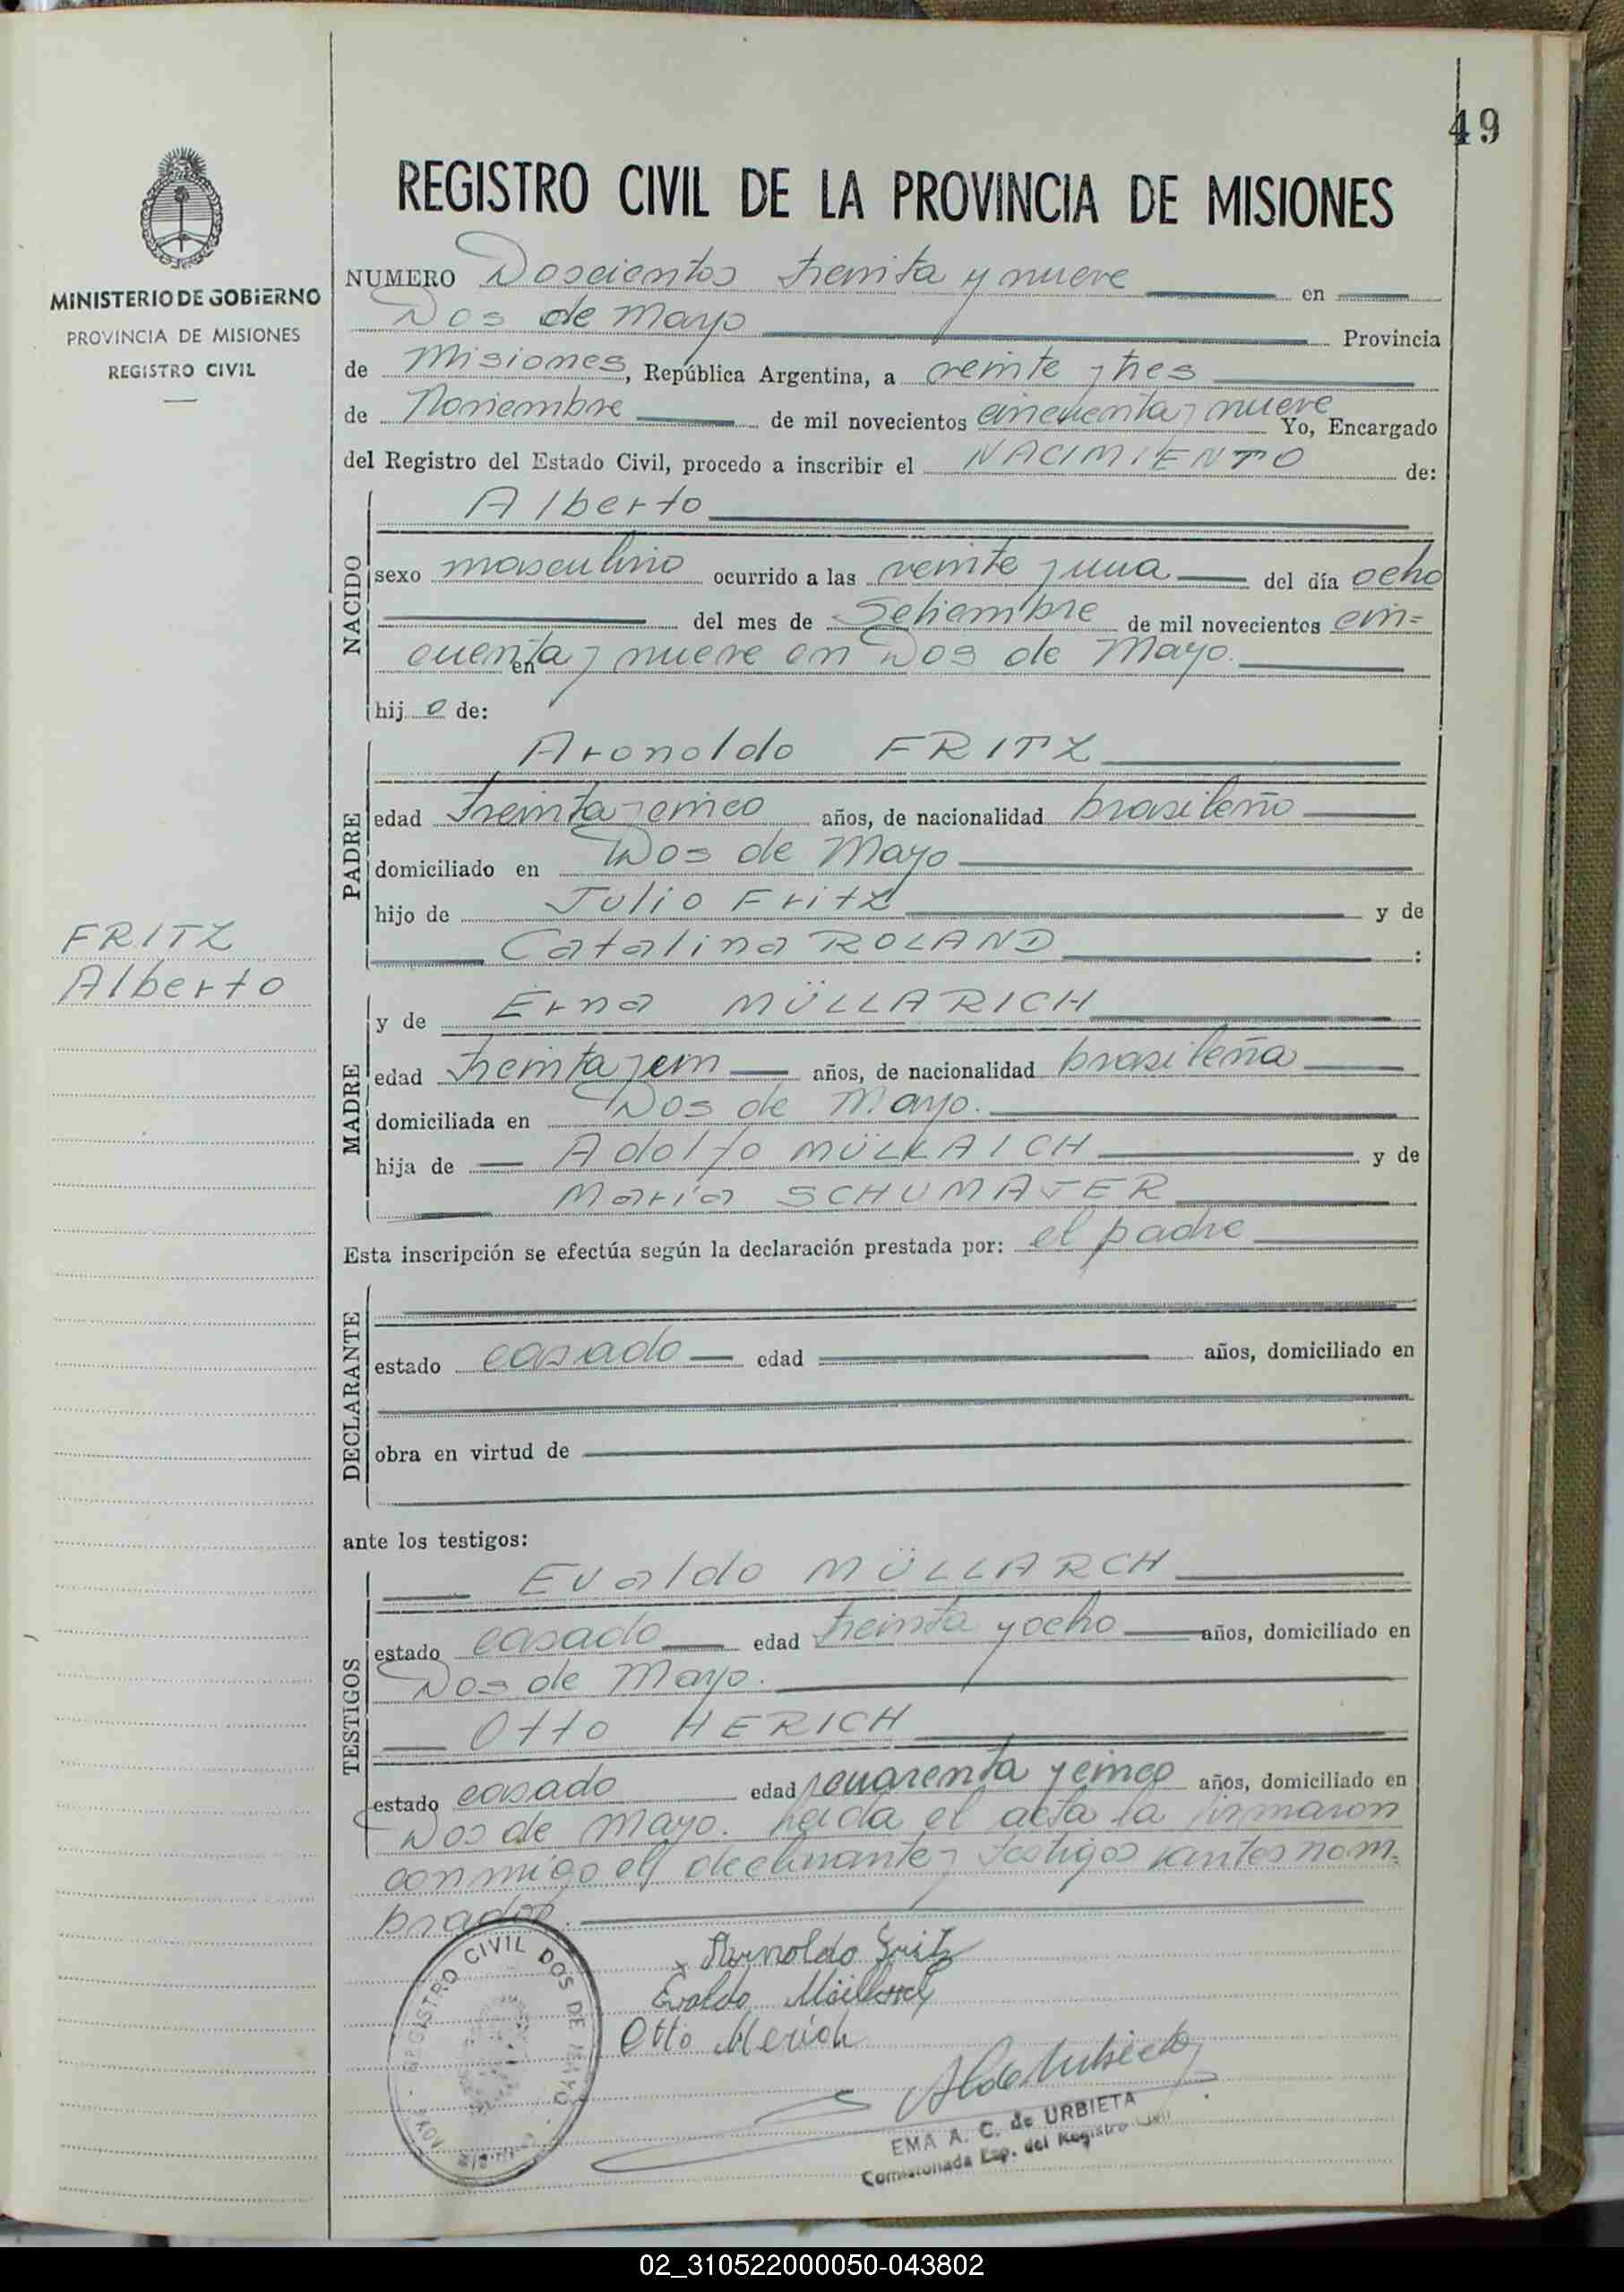 49
REGISTRO CIVIL DE LA PROVINCIA DE MISIONES
MINISTERIO DE GOBIERNO
PROVINCIA DE MISIONES
REGISTRO CIVIL
NUMERO Doscientos treinta y nueve en
Dos de Mayo Provincia
de Misiones, República Argentina, a veinte y tres
de Noviembre de mil novecientos cincuenta y nueve Yo, Encargado
del Registro del Estado Civil, procedo a inscribir el NACIMIENTO de:
NACIDO
Alberto
sexo masculino ocurrido a las veinte y una del día ocho
del mes de Setiembre de mil novecientos cin=
cuenta y nueve en en Dos de Mayo.
hij o de:
PADRE
Aronoldo FRITZ
edad treinta y cinco años, de nacionalidad brasileño
domiciliado en Dos de Mayo
hijo de Julio Fritz y de
Catalina ROLAND :
FRITZ
Alberto
MADRE
y de Erna MÜLLARICH
edad treinta y un años, de nacionalidad brasileña
domiciliada en Dos de Mayo.
hija de Adolfo MÜLLAICH y de
María SCHUMAJER
Esta inscripción se efectúa según la declaración prestada por: el padre
DECLARANTE
estado casado edad años, domiciliado en
obra en virtud de
ante los testigos:
TESTIGOS
Evaldo MÜLLARCH
estado casado edad treinta y ocho años, domiciliado en
Dos de Mayo.
Otto HERICH
estado casado edad cuarenta y cinco años, domiciliado en
Dos de Mayo. Leída el acta la firmaron
conmigo el declarante y testigos antes nom=
brados.
REGISTRO CIVIL DOS DE MAYO
x Arnoldo Fritz
Evaldo
Otto Herich
EMA A. C. de URBIETA
Comisionada Esp. del Registro Civil
02_310522000050-043802